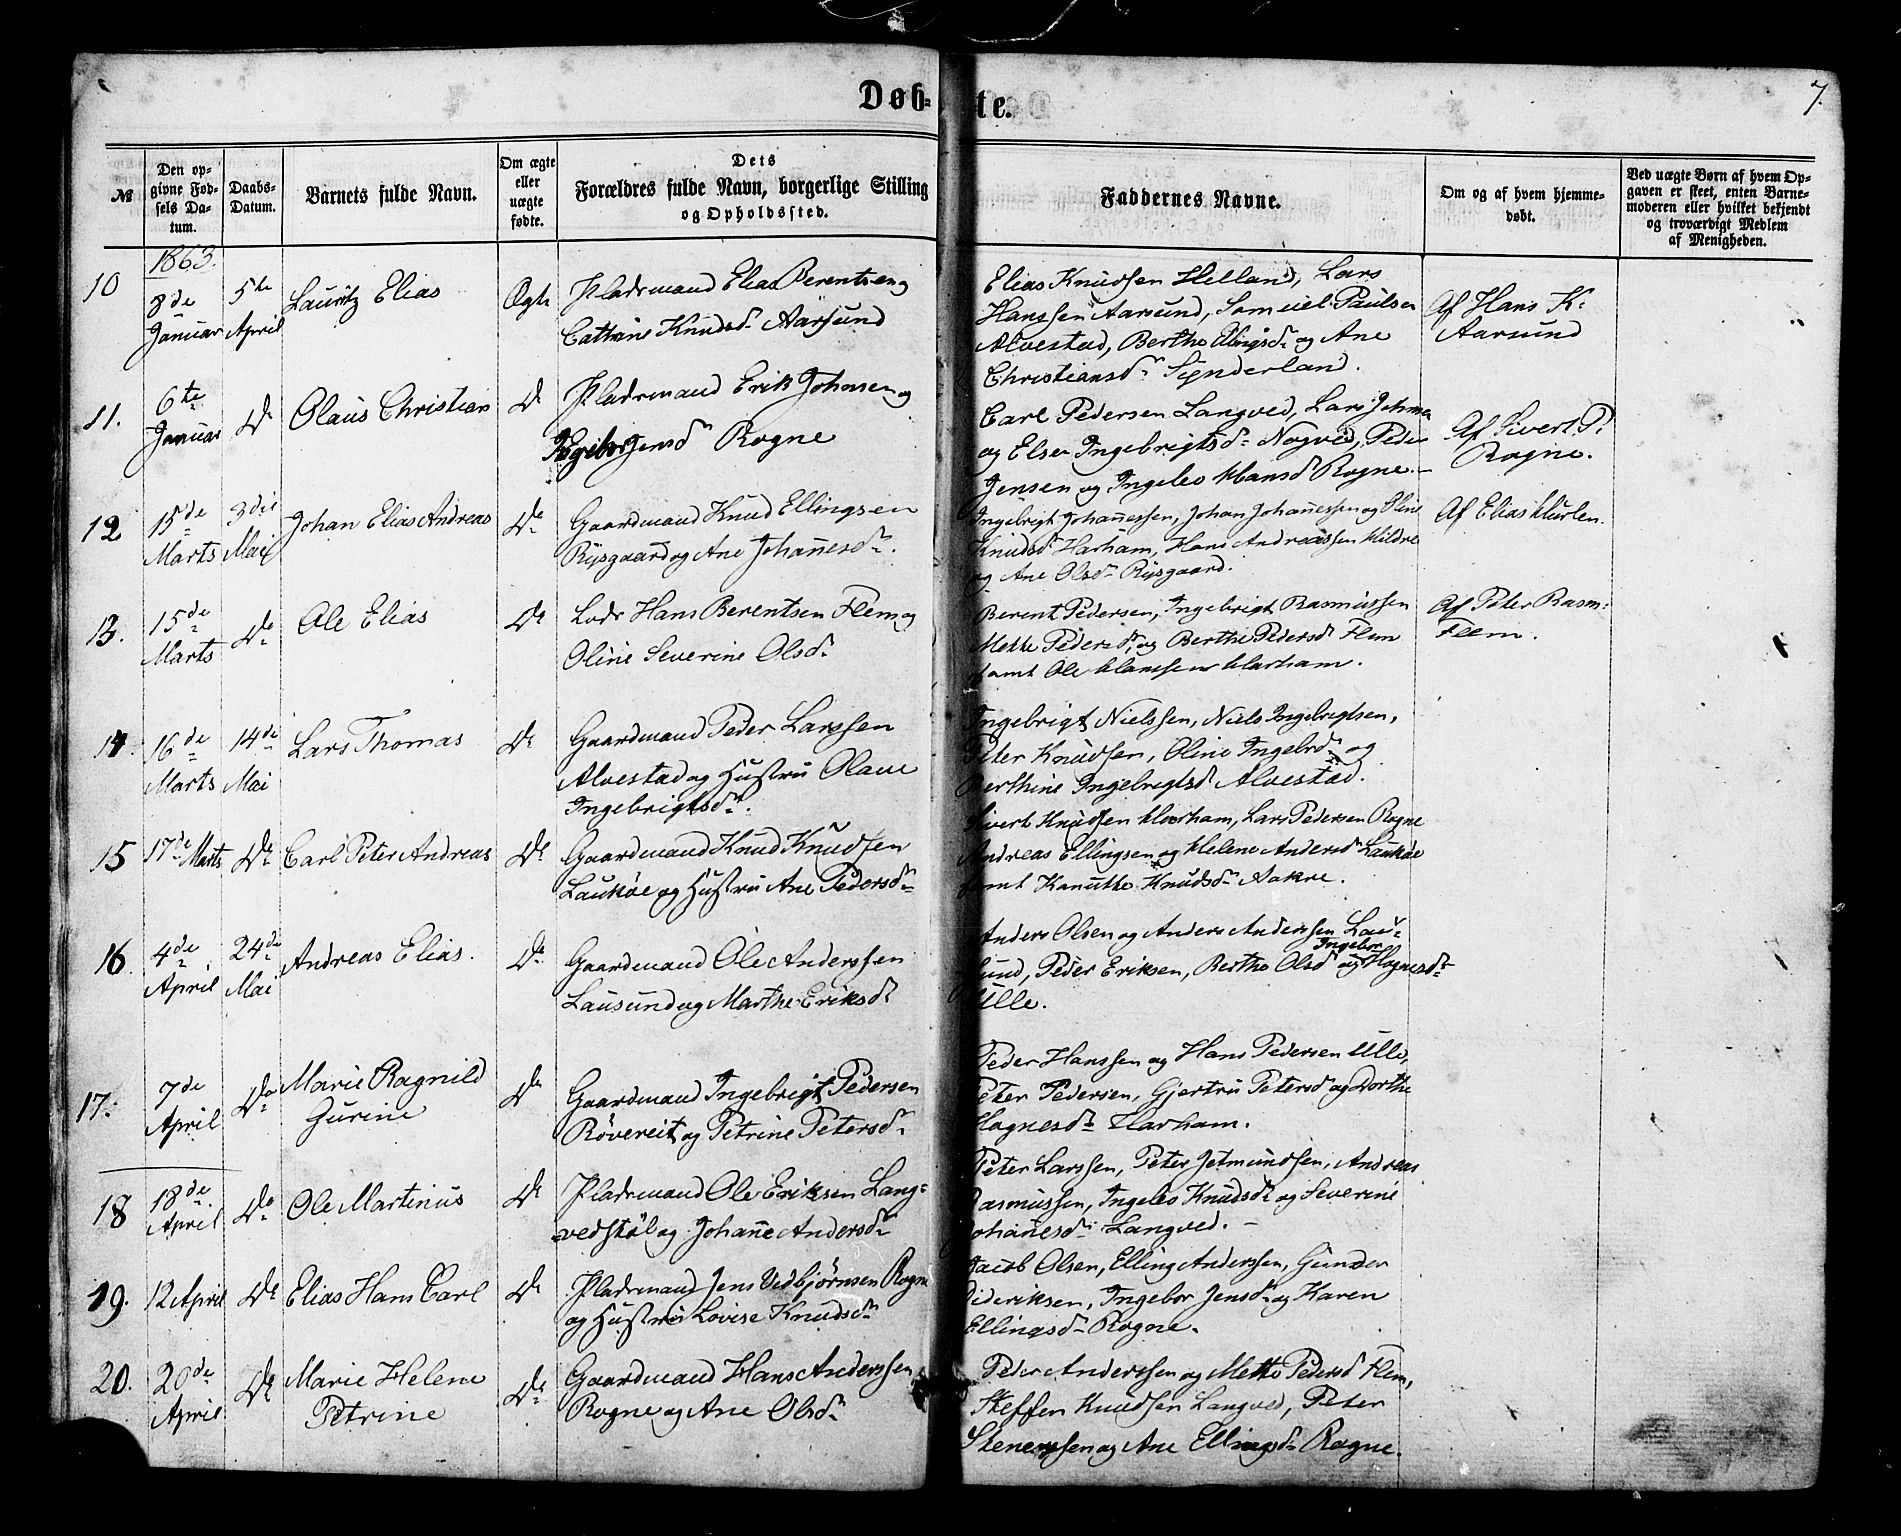 Døb-te.
7.
№
Den op-
givne Fød-
sels Da-
tum.
Daabs-
Datum.
Barnets fulde Navn.
Om ægte
eller
uægte
fødte.
Dets
Forældres fulde Navn, borgerlige Stilling
og Opholdssted.
Faddernes Navne.
Om og af hvem hjemme-
døbt.
Ved uægte Børn af hvem Op-
gaven er skeet, enten Barne-
moderen eller hvilket bekjendt
og troværdigt Medlem
af Menigheden.
1863.
10
8de
Januar
5te
April
Lauritz Elias
Ægte
Pladsmand Elias Berentsen og
Cathrine Knudsdr Aarsund
Elias Knudsen Helland, Lars
Hanssen Aarsund, Samuel Paulsen
Alvestad, Berthe Ellingsdr og Ane
Christiansdr Synderland.
Af Hans K.
Aarsund
11.
6te
Januar
Do
Olaus Christian
Do
Pladsmand Erik Johnsen og
Ingebor Jensdr Rogne
Carl Pedersen Langved, Lars Johnsen
og Else Ingebrigtsdr Nogved, Peder
Jensen og Ingeleo Hansdr Rogne.
Af Sivert P.
Rogne.
12
15de
Marts
3die
Mai
Johan Elias Andreas
Do
Gaardmand Knud Ellingsen
Rysgaard og Ane Johannesdr.
Ingebrigt Johannessen, Johan Johannessen og Oline
Knudsdr Harham, Hans Andreassen Hildre
og Ane Olsdr Rysgaard.
Af Elias Hurlen.
13.
15de
Marts
Do
Ole Elias
Do
Lods Hans Berentsen Flem og
Oline Severine Olsdr
Berent Pedersen, Ingebrigt Rasmussen
Mette Pedersdr, og Berthe Pedersdr Flem
samt Ole Hanssen Harham.
Af Peter Rasm:
Flem.
14
16de
Marts
14de
Mai
Lars Thomas
Do
Gaardmand Peder Larssen
Alvestad og Hustru Olave
Ingebrigtsdr.
Ingebrigt Nielssen, Niels Ingebrigtsen,
Peter Knudsen, Oline Ingebrdr og
Berthine Ingebrigtsdr Alvestad.
15
17de Marts
Do
Carl Peter Andreas
Do
Gaardmand Knud Knudsen
Laukøe og Hustru Ane Pedersdr
Sivert Knudsen Harham, Lars Pedersen Rogne
Andreas Ellingsen og Helene Andersdr Laukøe
samt Kanutte Knudsdr Aakre.
16
4de
April
24de
Mai
Andreas Elias.
Do
Gaardmand Ole Anderssen
Lausund og Marthe Eriksdr
Anders Olsen og Anders Anderssen Lau-
sund, Peder Eriksen, Berthe Olsdr og Ingebor Hagnesdr
Ulle.
17.
7de
April
Do
Marie Ragnild
Gurine
Do
Gaardmand Ingebrigt Pedersen
Røvereit og Petrine Petersdr
Peder Hanssen og Hans Pedersen Ulle,
Peter Pedersen, Gjertru Petersdr og Dorthe
Hagnesdr Harham.
18
18de
April
Do
Ole Martinus
Do
Pladsmand Ole Eriksen Lang-
vedstøl og Johanne Andersdr
Peter Larssen, Peter Jetmundsen, Andreas
Rasmussen, Ingeleo Knudsdr og Severine
Johannesdr Langved.
19.
12 April
Do
Elias Hans Carl
Do
Pladsmand Jens Vedbjørnsen Rogne
og Hustru Lovise Knudsdr
Jacob Olsen, Elling Anderssen, Gunder
Dideriksen, Ingebor Jensdr og Karen
Ellingsdr Rogne.
20.
20de
April
Do
Marie Helene
Petrine
Do
Gaardmand Hans Anderssen
Rogne og Ane Olsdr
Peder Anderssen og Mette Pedersdr Flem,
Steffen Knudsen Langved, Peter
Stenerssen og Ane Ellingsdr Rogne.